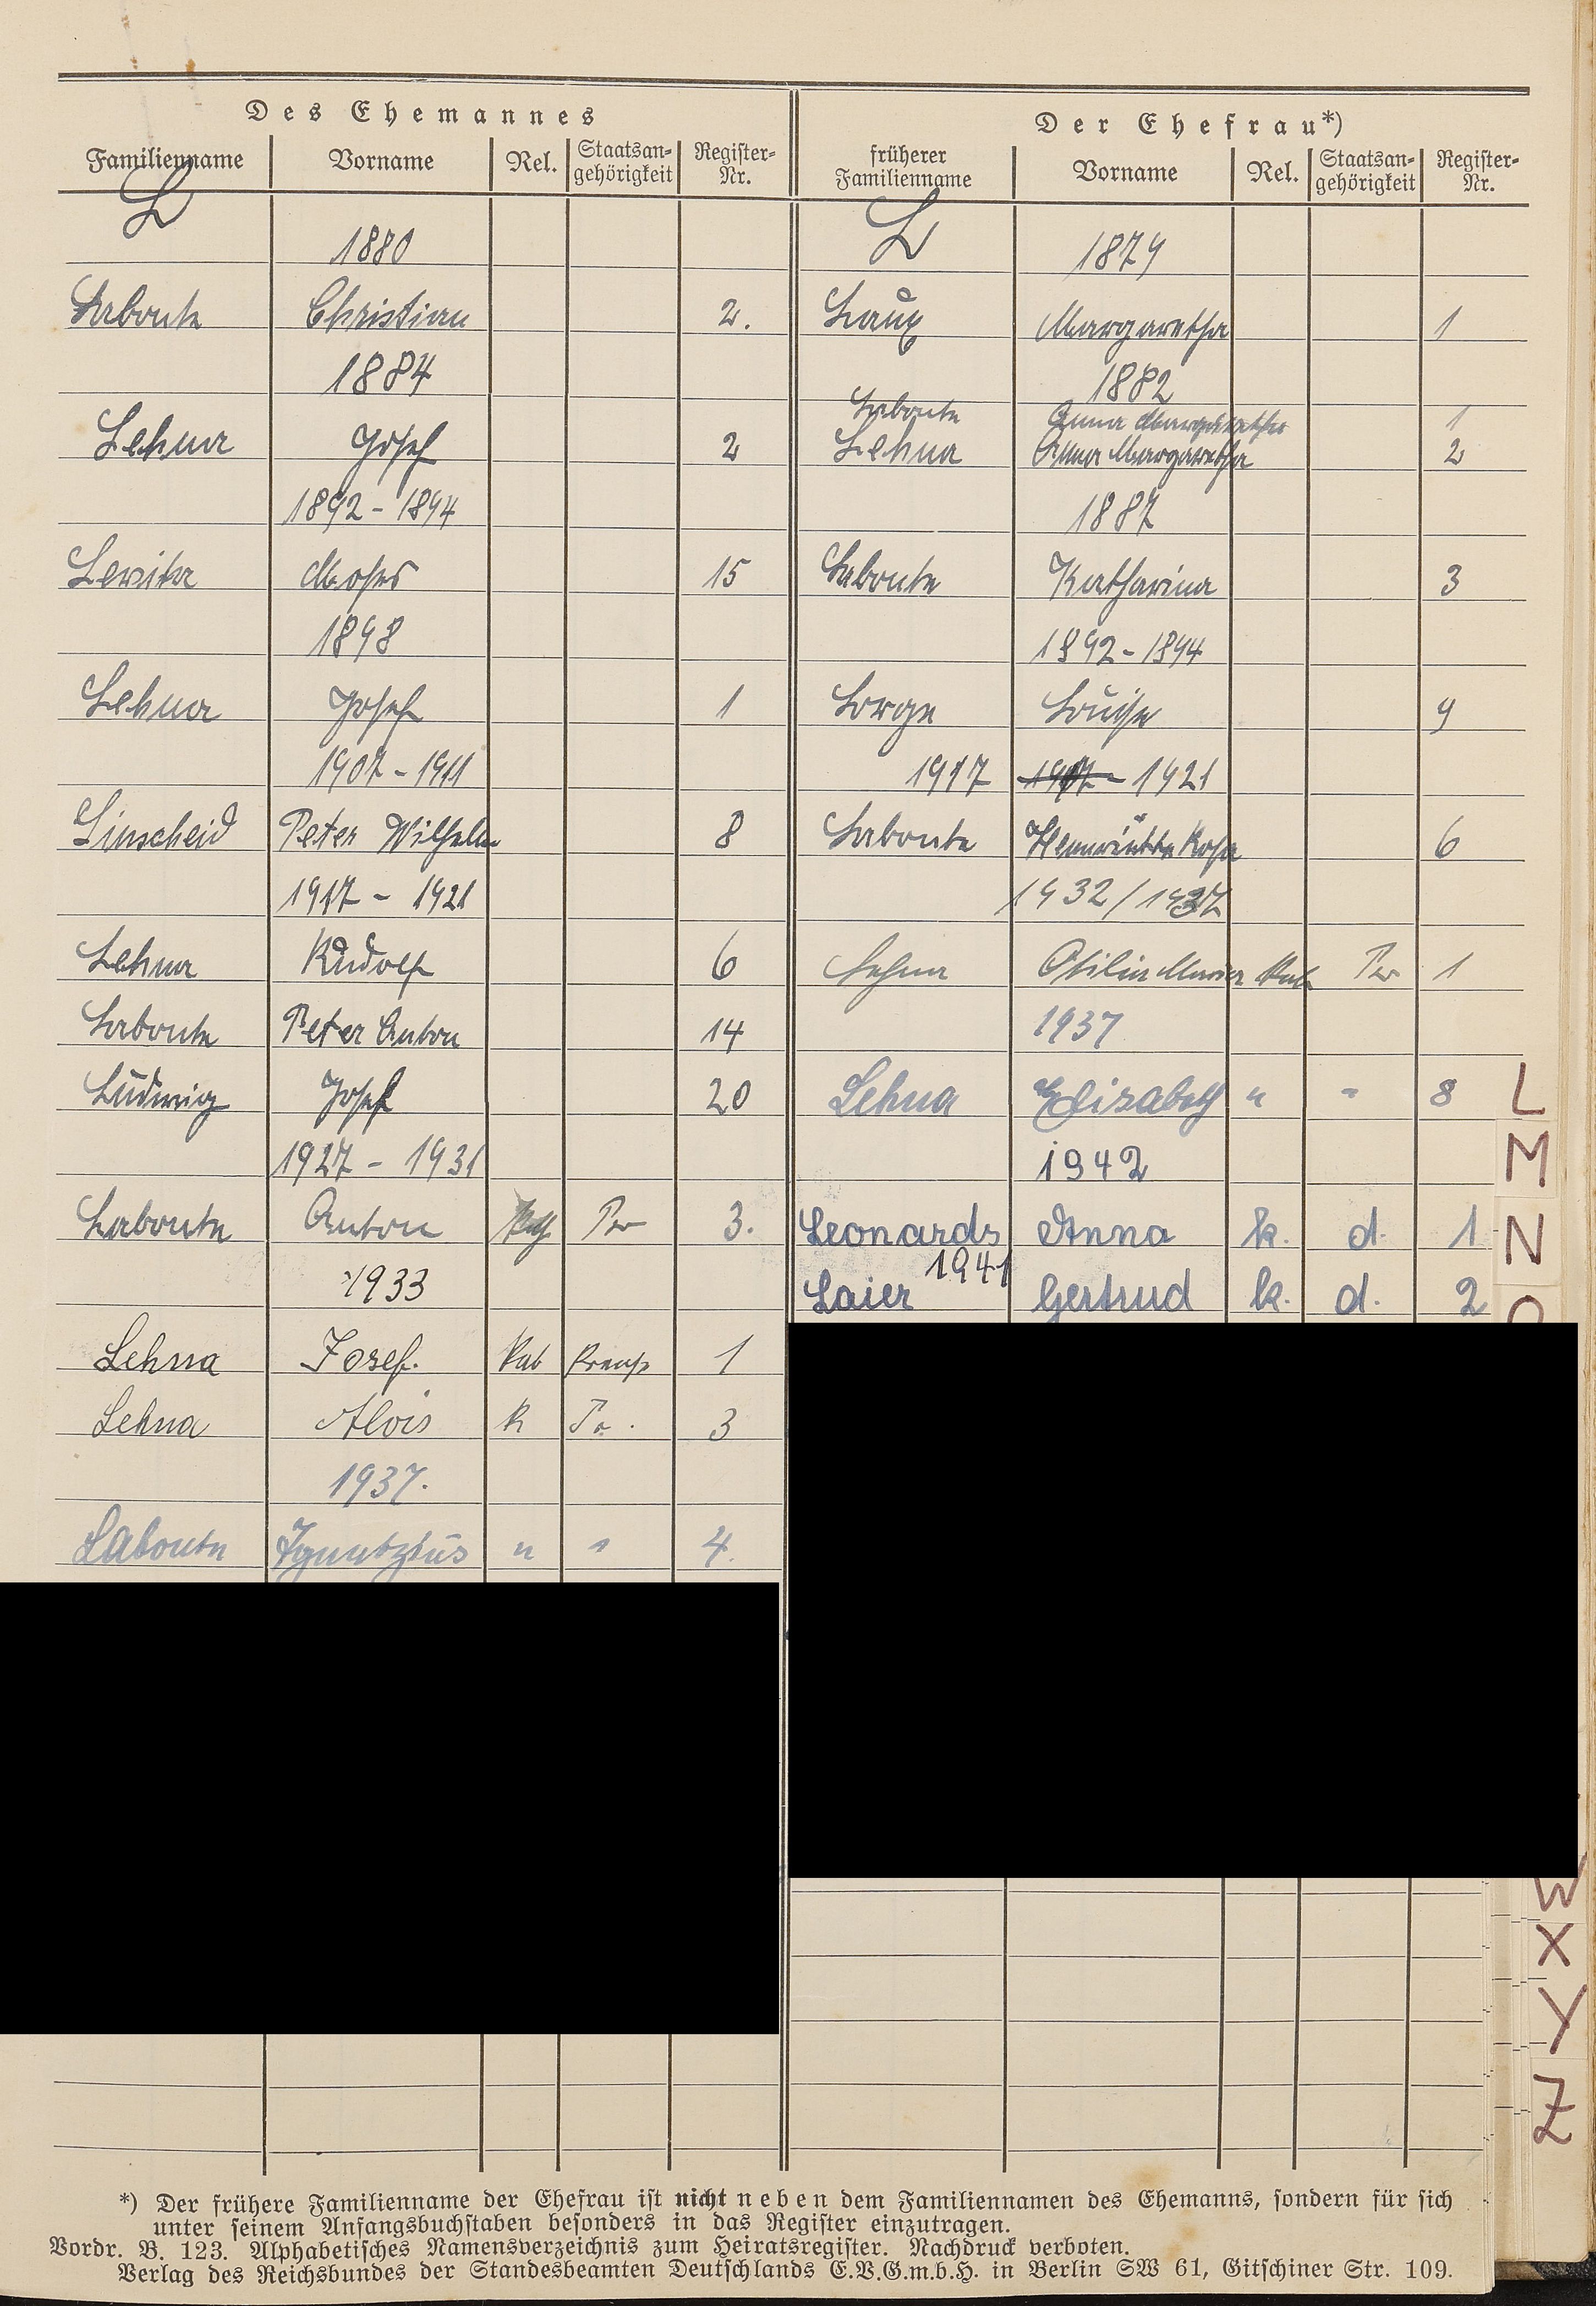 Des Ehemannes
Familienname Vorname Rel. Staatsan-gehörigkeit Register-Nr.
L
1880
Labonte Christian 2.
1884
Lehna Josef 2
1892 - 1894
Levita Moses 15
1898
Lehna Josef 1
1907 - 1911
Linscheid Peter Wilhelm 8
1917 - 1921
Lehna Rudolf 6
Labonte Peter Anton 14
Ludwig Josef 20
1927 - 1931
Labonte Anton Pr 3.
1933
Lehna Josef. Kat Preuß 1
Lehna Alois K Pr. 3
1937.
Labonte Ignatzius " " 4.
Der Ehefrau*)
früherer Familienname Vorname Rel. Staatsan-gehörigkeit Register-Nr.
L
1879
Laux Margaretha 1
1882
Labonte Anna Margaretha 1
Lehna Anna Margaretha 2
1887
Labonte Katharina 3
1892 - 1894
Lorge Louise 9
1917 - 1921
Labonte Henriette Rosa 6
1932/1937
Lehna Otilia Maria Kat Pr 1
1937
Lehna Elisabeth " " 8
1942
Leonards Anna k. d. 1
1941
Laier Gertrud k. d. 2
L
M
N
O
W
X
Y
Z
*) Der frühere Familienname der Ehefrau ist nicht neben dem Familiennamen des Ehemanns, sondern für sich
unter seinem Anfangsbuchstaben besonders in das Register einzutragen.
Vordr. B. 123. Alphabetisches Namensverzeichnis zum Heiratsregister. Nachdruck verboten.
Verlag des Reichsbundes der Standesbeamten Deutschlands E.V.G.m.b.H. in Berlin SW 61, Gitschiner Str. 109.